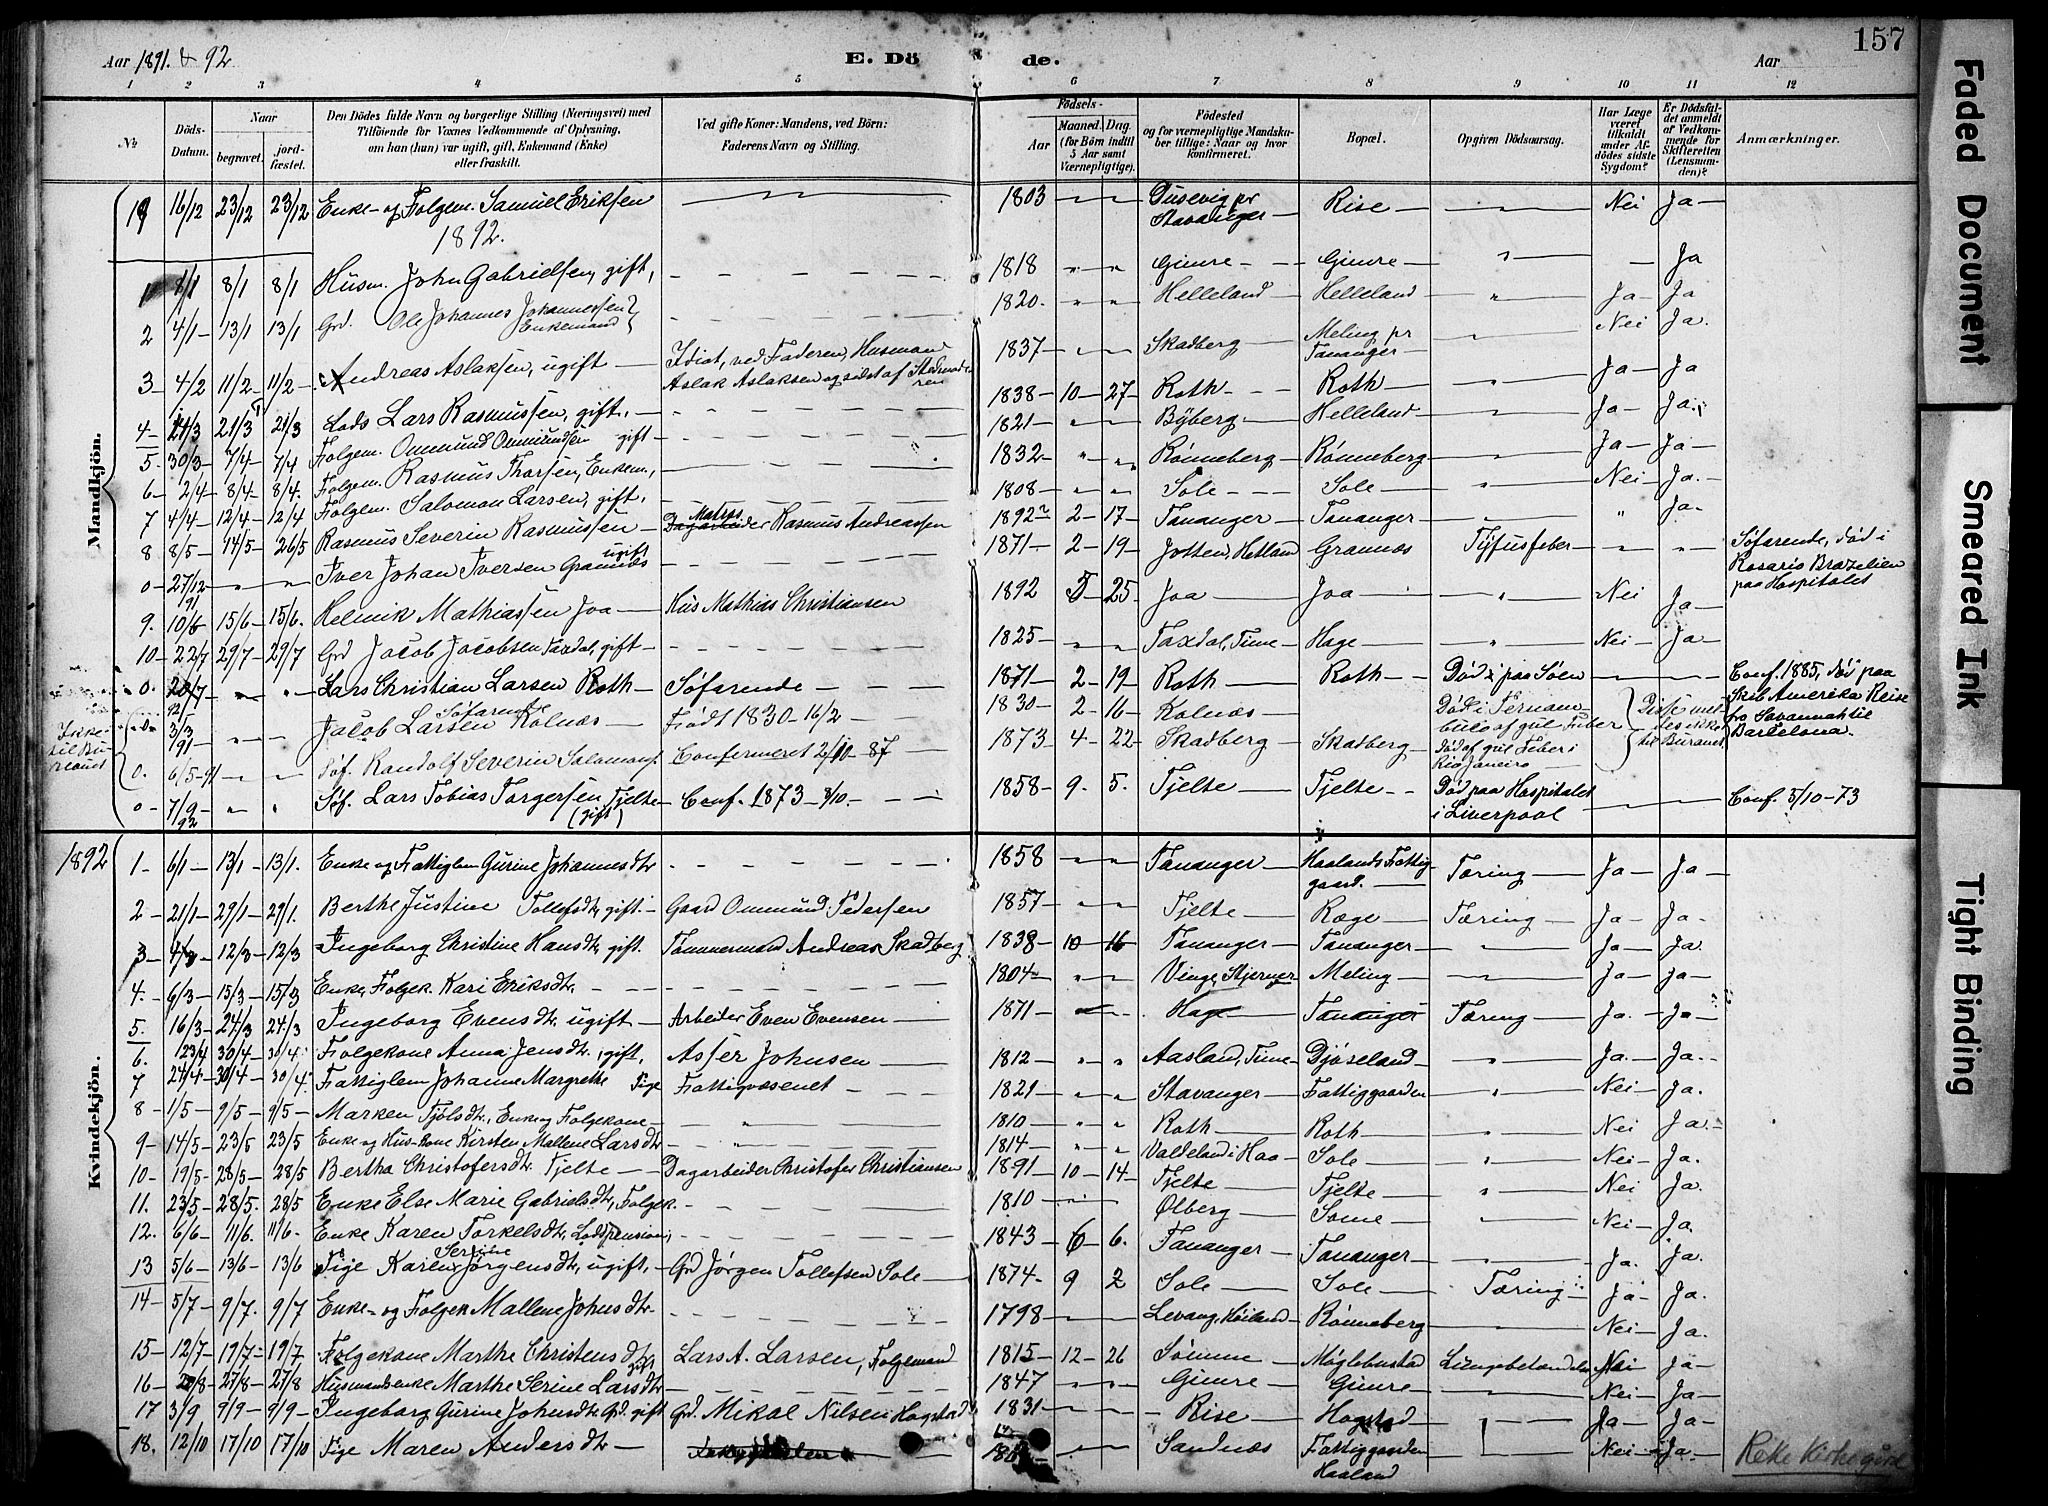 Aar 1891. & 92
E. Dö de.
Aar
157
1 2 3 4 5 6 7 8 9 10 11 12
No
Döds-Datum.
Naar
begravet.
jord-fæstet.
Den Dödes fulde Navn og borgerlige Stilling (Næringsvei) med
Tilföiende for Voxnes Vedkommende af Oplysning,
om han (hun) var ugift, gift, Enkemand (Enke)
eller fraskilt.
Ved gifte Koner: Mandens, ved Børn:
Faderens Navn og Stilling.
Födsels-
Aar
Maaned. Dag.
(for Börn indtil
5 Aar samt
Værnepligtige).
Födested
og for værnepligtige Mandska-
ber tillige: Naar og hvor
konfirmeret.
Bopæl.
Opgiven Dödsaarsag.
Har Læge
været
tilkaldt
under Af-
dödes sidste
Sygdom?
Er Dödsfal-
det anmeldt
af Vedkom-
mende for
Skifteretten
(Lensman-
den)?
Anmærkninger.
Mandkjön.
19 16/12 23/12 23/12 Enke- og Folgem. Samuel Eriksen — 1803 — — Dusevig pr Stavanger — Rise — — Nei Ja —
1892.
1 8/1 8/1 8/1 Husm. John Gabrielsen, gift, 1818 " " Gimre — Gimre — " — Ja
2 4/1 13/1 13/1 Grd. Ole Johannes Johannessen Enkemand 1820. " " Helleland — Helleland — " Ja — Ja
3 4/2 11/2 11/2 Andreas Aslaksen, ugift — Idiot, ved Faderen, Husmand Aslak Aslaksen og sidst af 1837 — — Skadberg — Meling pr Tananger — — Nei Ja.
4 21/3 21/3 Lods Lars Rasmussen, gift, — 1838 — 10 — 27 — Roth — Roth — " Ja — Ja
5 30/3 7/4 7/4 Folgem. Ommund Ommundsen gift — 1821 — " — Byberg — Helleland — Ja — Ja.
6 2/4 8/4 8/4. Folgem. Rasmus Thorsen, Enkem, 1832 — " " Rønneberg — Rønneberg — Ja — Ja —
7 4/4 12/4 12/4 Folgem. Salomon Larsen, gift, 1808 — " " Sole — Sole — " Nei Ja. —
8 8/5 14/5 26/5 Rasmus Severin Rasmussen — Matros Rasmus Andreassen 1892 2 — 17 — Tananger — Tananger — " Ja —
0 27/12 91 " " Iver Johan Iversen Grannæs ugift 1871 — 2 — 19 — Jotten, Hetland Grannæs Tyfusfeber " " Søfarende, død i Rosario Brazilien paa Hospitalet
9. 10/6 15/6 15/6. Helmik Mathiassen Joa — Hus Mathias Christiansen 1892 5 — 25 — Joa — Joa — " Nei Ja —
10 22/7 29/7 29/7 Grd Jacob Jacobsen Taxdal, gift — 1825 — " " Taxdal, Time — Hage — " Nei — Ja —
0. 20/7 92 " " Lars Christian Larsen Roth — Søfarende — 1871 — 2 — 19 — Roth — Roth — Død paa Søen — Conf. 1885, død paa Skib Amerika Reise fra Savannah til Barcelona.
3/3 91 " " Jacob Larsen Søfarende Kolnæs — Født 1830 — 16/2 — 1830 — 2 — 16 — Kolnæs — Død i Pernambuko af gul Feber
0. 6/5 — 91 " " Søf. Randolf Severin Salamons. Confirmeret 2/10 — 87 1873 — 4 — 22 — Skadberg — Skadberg — Død af gul Feber i Rio Janeiro
0 7/9 92 " " Søf. Lars Tobias Torgersen Tjelte — (gift) Conf. 1873 — 1858 — 9. 5. Tjelte — Tjelte — Død paa Hospitalet i Liverpool — Conf. 5/10 — 73
Kvindekjön.
1892 1 — 6/1 — 13/1 — 13/1. Enke og Fattiglem Gurine Johannesdtr 1858 " " Tananger — Haalands Fattiggaard. — Tæring — Ja — Ja —
2 — 21/1 29/1 29/1. Berthe Justine Tollefsdtr, gift. — Gaard Ommund Pedersen 1857 — " " Tjelte — Ræge — Tæring — Ja — Ja.
3 12/3 12/3 Ingeborg Christine Hansdtr, gift. Tømmermand Andreas Skadberg 1838 — 10 — 16 Tananger — Tananger — " Ja — Ja.
4. 6/3 15/3 15/3 Enke, Folgek. Kari Eriksdtr. 1804 — " " Vinge, Stjerner Meling — — Ja — Ja —
5. 16/3 24/3 24/3 Ingeborg Evensdtr. ugift — Arbeider Even Evensen — 1871 — Hage — Tananger Tæring — Ja. — Ja —
6. 23/4 30/4 30/4 Folgekone Anna Jensdtr., gift, Asser Johnsen — 1812 — " " Aasland, Time — Djøseland — " Ja. — Ja. —
7 24/4 30/4 30/4. Fattiglem Johanne Margrethe Pige Fattigvæsenet — 1821 — " " Stavanger — Fattiggaarden " Nei — Ja.
8 — 1/5 — 9/5 — 9/5 — Marken Tjølsdtr, Enke og Folgekone — 1810 — " " Roth — Roth — Nei Ja. —
9 — 14/5 23/5 23/5 Enke og Hus-kone Kirsten Mallene Larsdtr " 1814 — " " Valdeland i Haa — Sole — " Nei — Ja.
10 — 19/5 28/5 28/5 Bertha Christofersdtr. Tjelte — Dagarbeider Christofer Christiansen 1891 — 10 — 14 — Tjelte — Tjelte — " Nei Ja.
11. 23/5 28/5. 28/5 Enke Else Marie Gabrielsdtr, Folgek. 1810 — Ølberg — Some — " Nei — Ja.
12. 6/6 11/6. 11/6. Enke Karen Torkelsdtr, Lodspension; 1843 6 — 6. Tananger — Tananger — Ja. Ja.
13 5/6 13/6 13/6 Pige Karen Serine Jørgensdtr, ugift, — Grd Jørgen Tollefsen Sole — 1874 — 9 2 Sole — Sole — Tæring Ja — Ja.
14 — 5/7 9/7. 9/7 Enke- og Folgek Mallene Johnsdtr — 1798 — Levang, Høiland — Rønneberg — Nei — Ja.
15 — 12/7 19/7 19/7 Folgekone Marthe Christensdtr gift Lars A. Larsen, Folgemand 1815 — 12 — 26 Sømme — Møglebustad Lungebetændelse Nei Ja —
16 — 27/8 27/8 Husmandsenke Marthe Serine Larsdtr — 1847 — " " Gimre — Gimre — Nei — Ja —
17 3/9 9/9 9/9 — Ingeborg Gurine Johnsdtr Grd. gift Grd. Mikal Nilsen Hogstad 1831 — — Rise — Hogstad — Ja — Ja —
18. 12/10 17/10 17/10 Pige Maren Andersdtr — Sandnæs Fattiggaarden Haaland — Nei — Ja. — Reke Kirkegård
Faded Document
Smeared Ink
Tight Binding